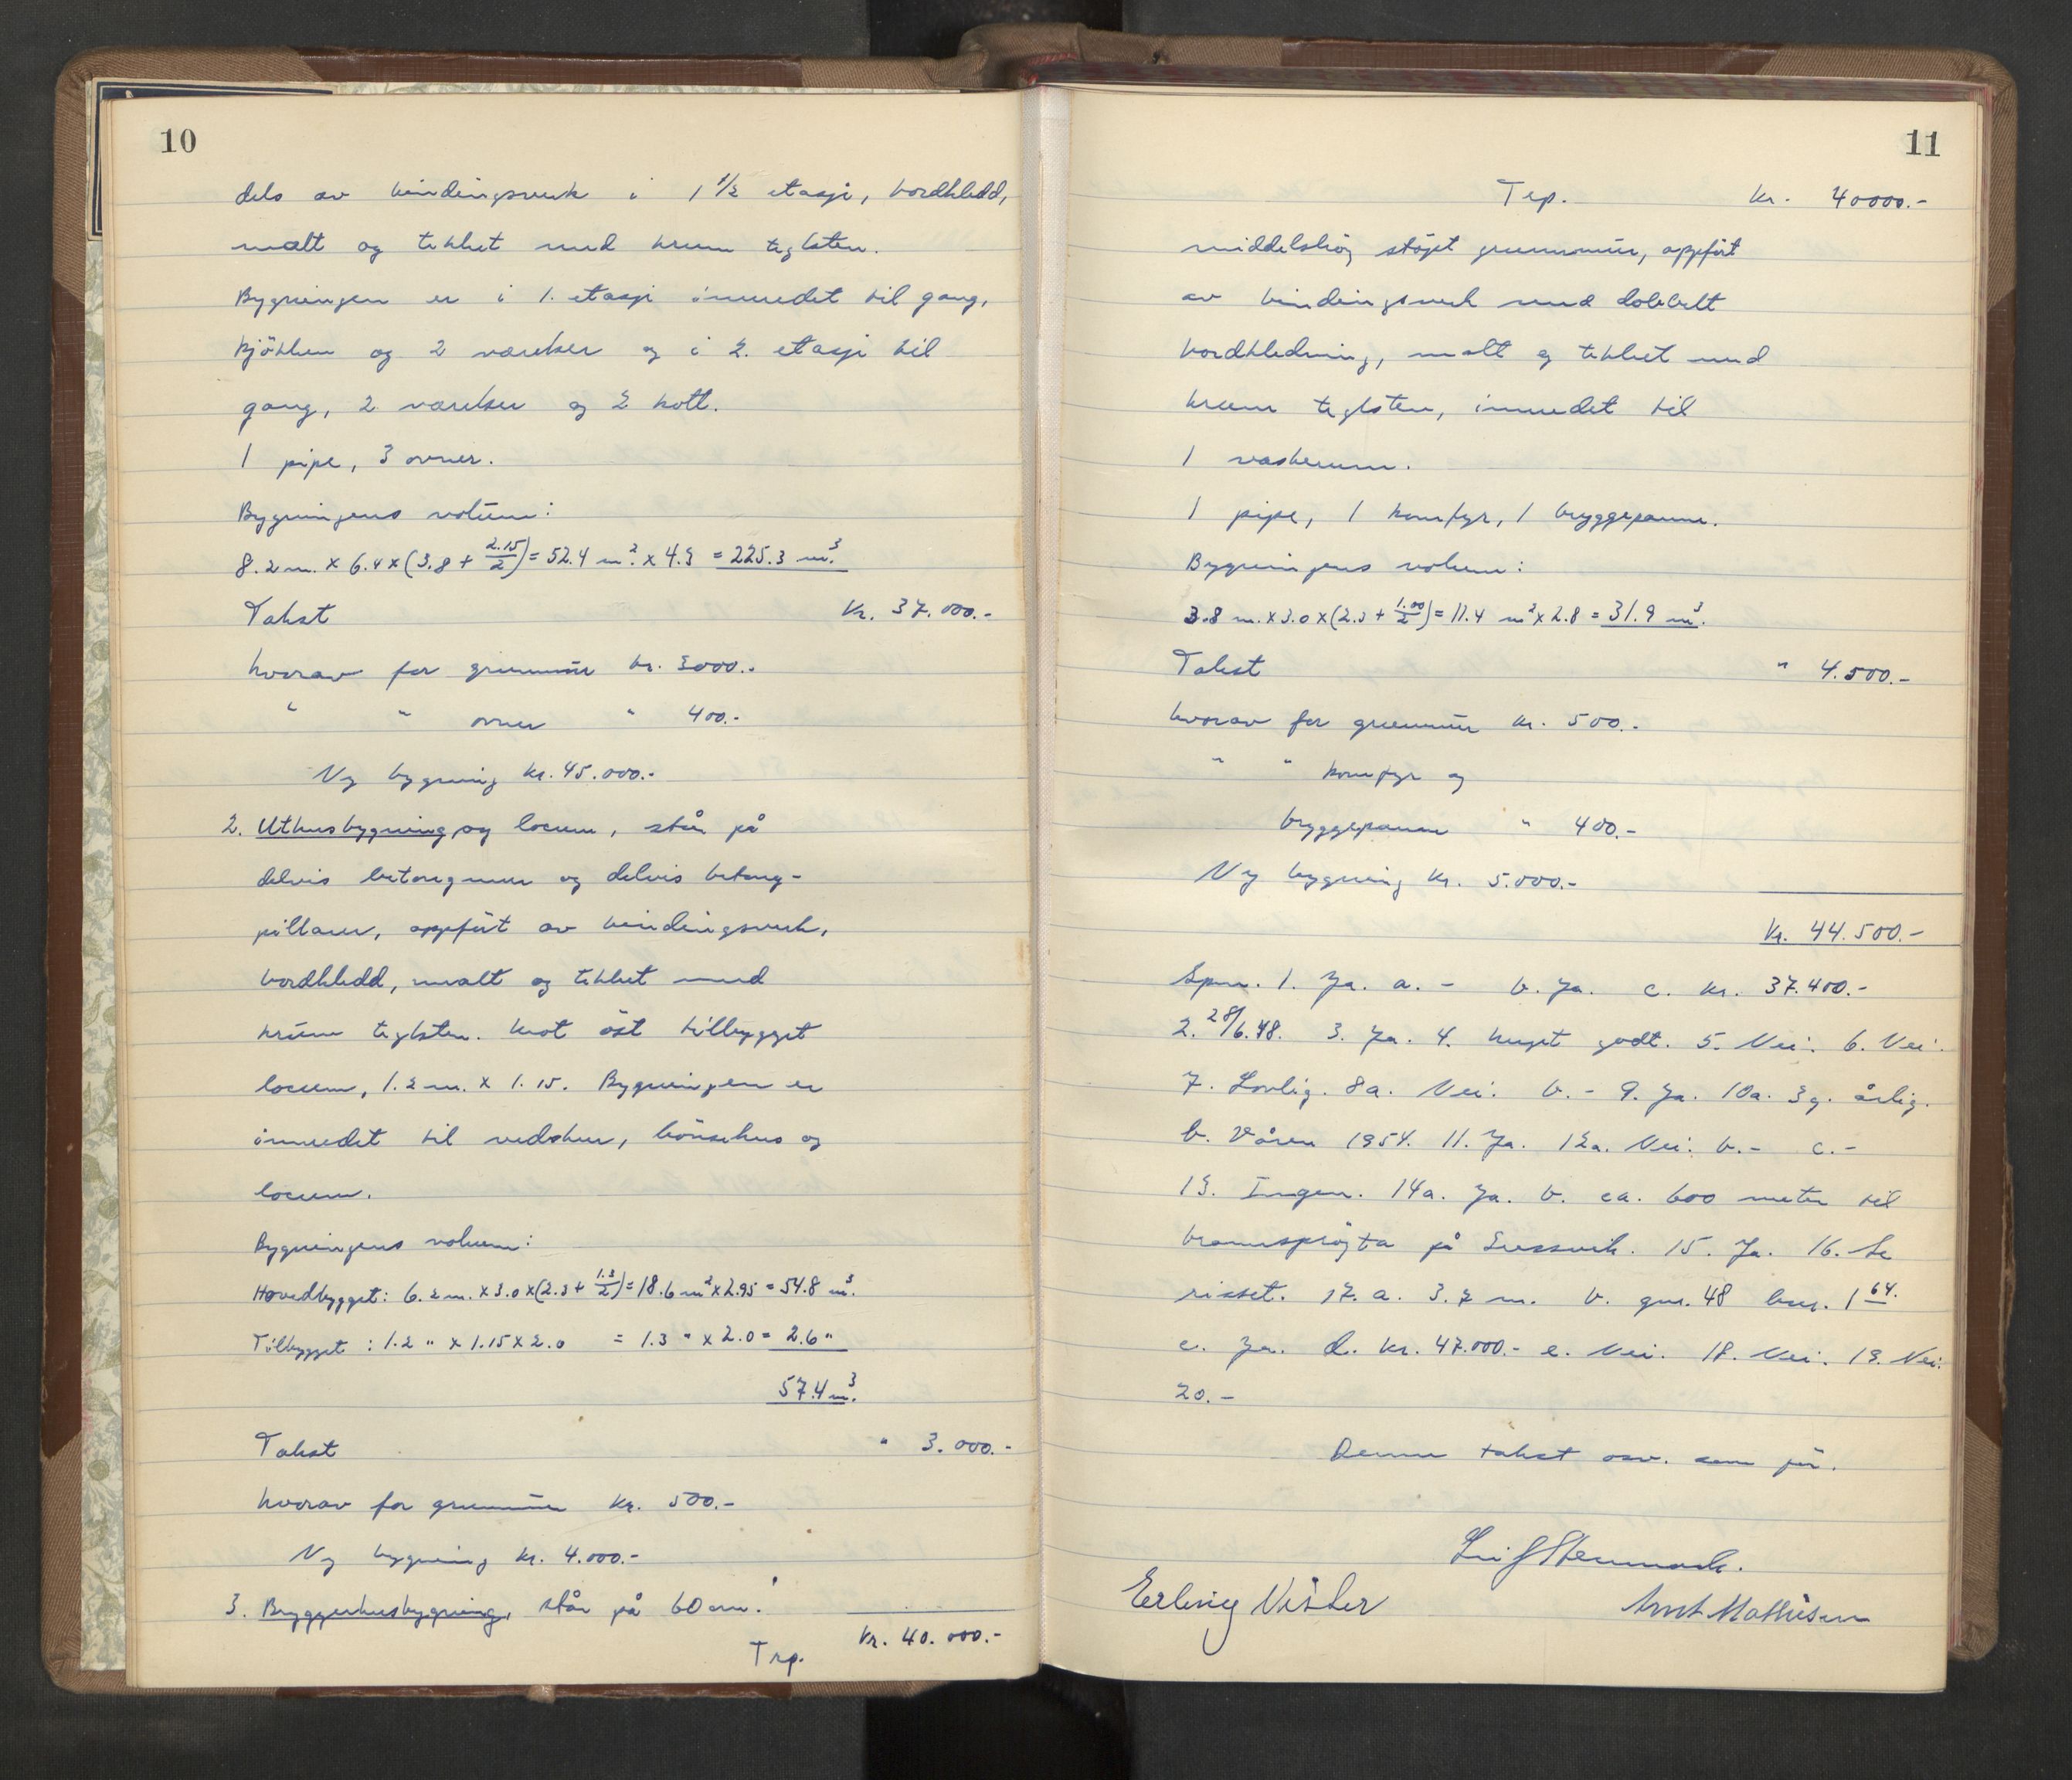 10
dels av bindingsverk i 1 1/2 etasje, bordkledd,
malt og tekket med krum teglsten.
Bygningen er i 1. etasje innredet til gang,
kjökken og 2 værelser og i 2. etasje til
gang, 2 værelser og 2 kott.
1 pipe, 3 ovner.
Bygningens volum:
8.2 m. x 6.4 x (3.8 + 2.15/2) = 52.4 m². x 4.3 = 225.3 m³.
Takst Kr. 37.000.-
hvorav for grunnmur kr. 3000.-
" " ovner " 400.-
Ny bygning kr. 45.000.-
2. Uthusbygning og locum, står på
delvis betongmur og delvis betong-
pillarer, oppfört av bindingsverk,
bordkledd, malt og tekket med
krum teglsten. Mot öst tilbygget
locum, 1.2 m. x 1.15. Bygningen er
innredet til vedskur, hönsehus og
locum.
Bygningens volum:
Hovedbygget: 6.2 m. x 3.0 x (2.3 + 1.3/2) = 18.6 m² x 2.95 = 54.8 m³.
Tilbygget : 1.2 " x 1.15 x 2.0 = 1.3 " x 2.0 = 2.6 "
57.4 m³.
Takst " 3.000.-
hvorav for grunnmur kr. 500.-
Ny bygning kr. 4.000.-
3. Bryggerhusbygning, står på 60 cm.
Trp. Kr. 40.000.-
11
Trp. Kr. 40000.-
middelshög stöpt grunnmur, oppfört
av bindingsverk med dobbelt
bordkledning, malt og tekket med
krum teglsten, innredet til
1 vaskerum.
1 pipe, 1 komfyr, 1 bryggepanne.
Bygningens volum:
3.8 m. x 3.0 x (2.3 + 1.00/2) = 11.4 m² x 2.8 = 31.9 m³.
Takst " 4.500.-
hvorav for grunnmur kr. 500.-
" " komfyr og
bryggepanne " 400.-
Ny bygning kr. 5.000.-
Kr. 44.500.-
Spm. 1. Ja. a. - b. Ja. c. kr. 37.400.-
2. 28/6.48. 3. Ja. 4. Meget godt. 5. Nei. 6. Nei.
7. Lovlig. 8a. Nei. b. - 9. Ja. 10a. 3 g. årlig.
b. Våren 1954. 11. Ja. 12a. Nei. b. - c. -
13. Ingen. 14a. Ja. b. ca. 600 meter til
brannspröyta på 15. Ja. 16. Se
risset. 17. a. 3.7 m. b. gnr. 48 bnr. 1 64.
c. Ja. d. kr. 47.000.- e. Nei. 18. Nei. 19. Nei.
20. -
Denne takst osv. som för.
Leif Stenmark.
Erling Vister Arnt Mathisen